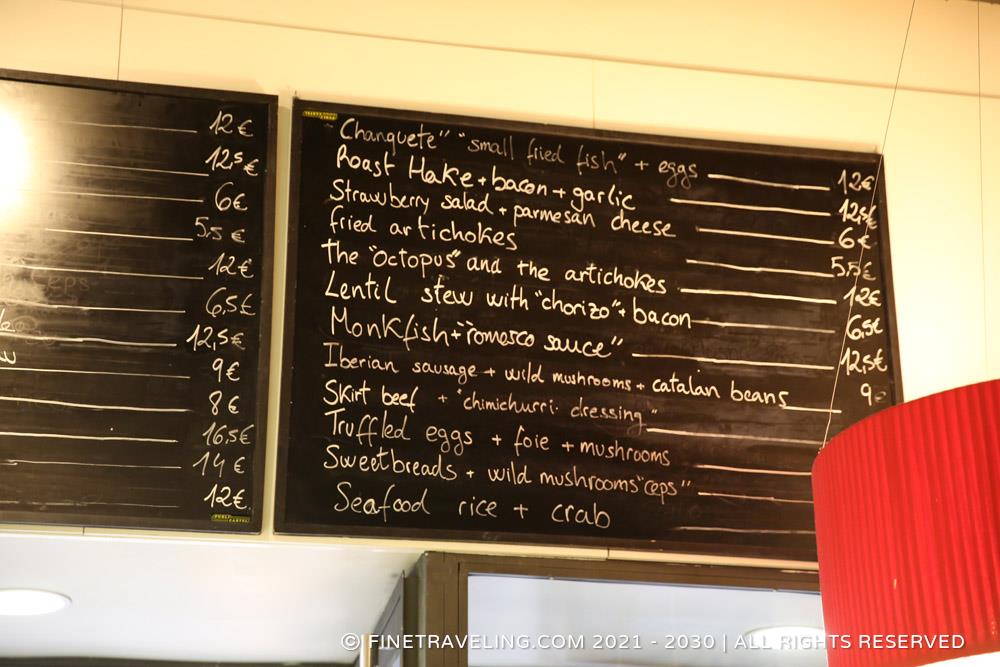 12€
12,5€
6€
5,5€
12€
6,5€
12,5€
9€
8€
16,5€
14€
12€
Changuete" "small fried fish" + eggs 12€
Roast Hake + bacon + garlic 12,5€
Strawberry salad + parmesan cheese 6€
fried artichokes 5,5€
The "octopus" and the artichokes 12€
Lentil stew with "chorizo" + bacon 6,5€
Monkfish + "romesco sauce" 12,5€
Iberian sausage + wild mushrooms + catalan beans 9€
Skirt beef + "chimichurri dressing"
Truffled eggs + foie + mushrooms
Sweetbreads + wild mushrooms "ceps"
Seafood rice + crab
© FINETRAVELING.COM 2021 - 2030 | ALL RIGHTS RESERVED